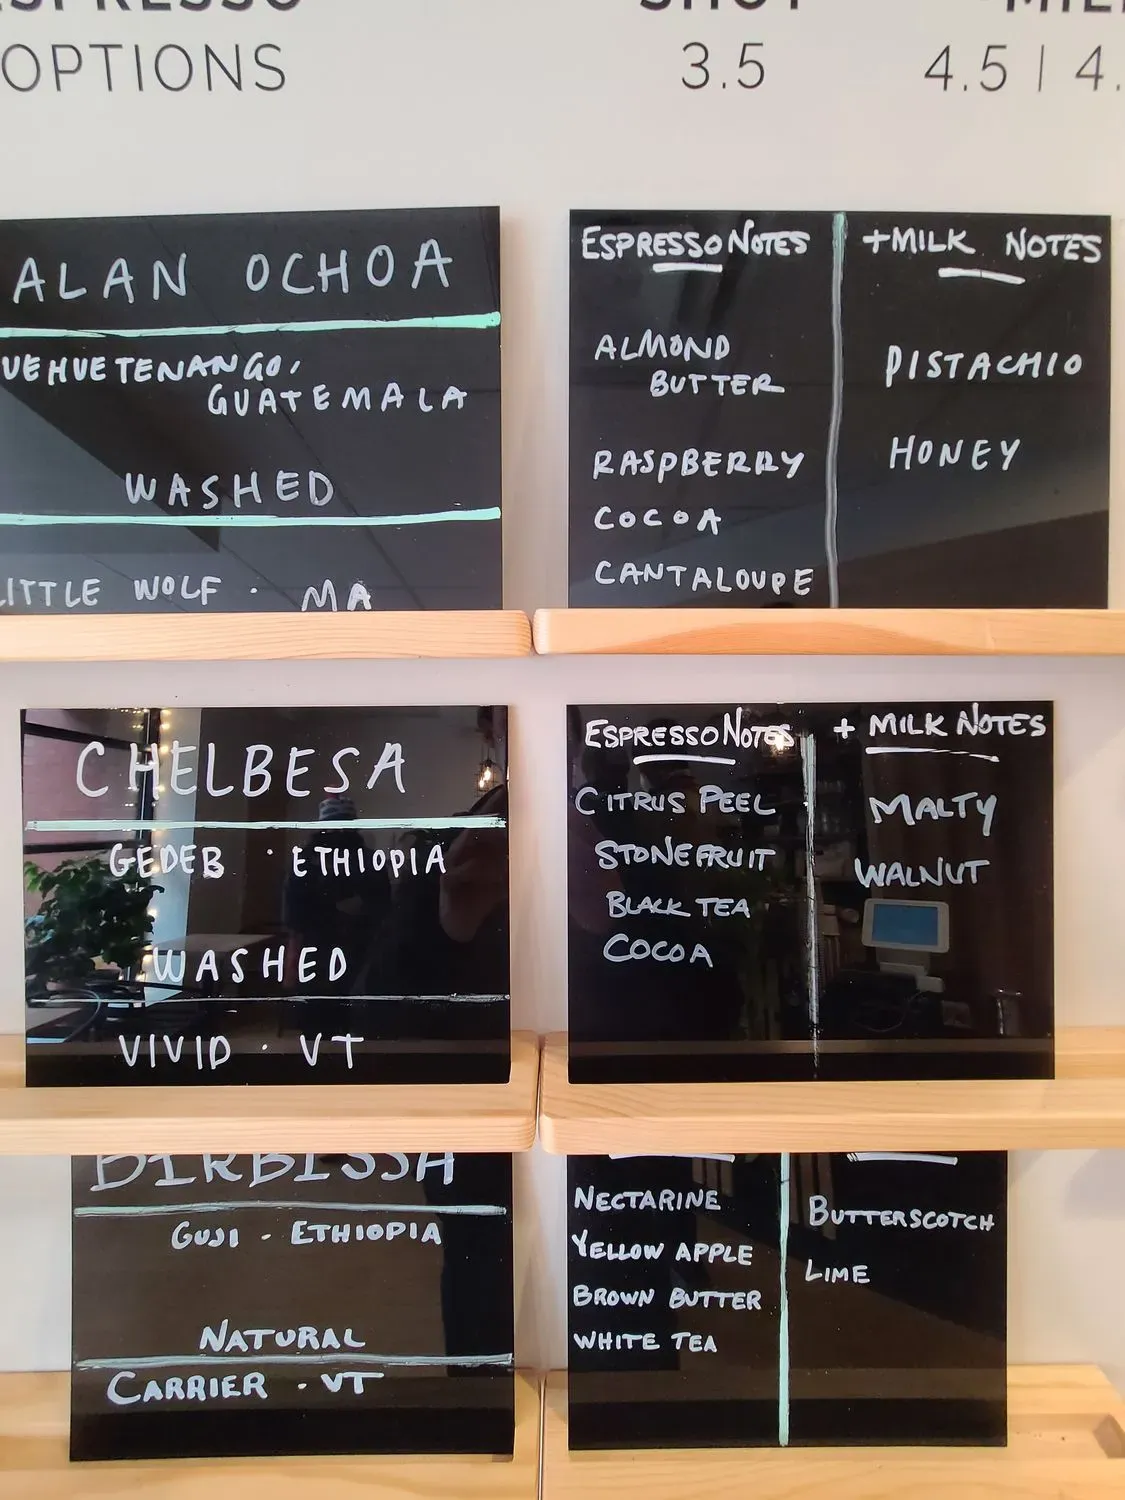 ESPRESSO
OPTIONS
SHOT
3.5
4.5 | 4.
ALAN OCHOA
UEHUETENANGO,
GUATEMALA
WASHED
LITTLE WOLF · MA
ESPRESSO NOTES
ALMOND
BUTTER
RASPBERRY
COCOA
CANTALOUPE
+MILK NOTES
PISTACHIO
HONEY
CHELBESA
GEDEB · ETHIOPIA
WASHED
VIVID · VT
ESPRESSO NOTES
CITRUS PEEL
STONEFRUIT
BLACK TEA
COCOA
+ MILK NOTES
MALTY
WALNUT
BIRBISSA
GUJI - ETHIOPIA
NATURAL
CARRIER · VT
NECTARINE
YELLOW APPLE
BROWN BUTTER
WHITE TEA
BUTTERSCOTCH
LIME